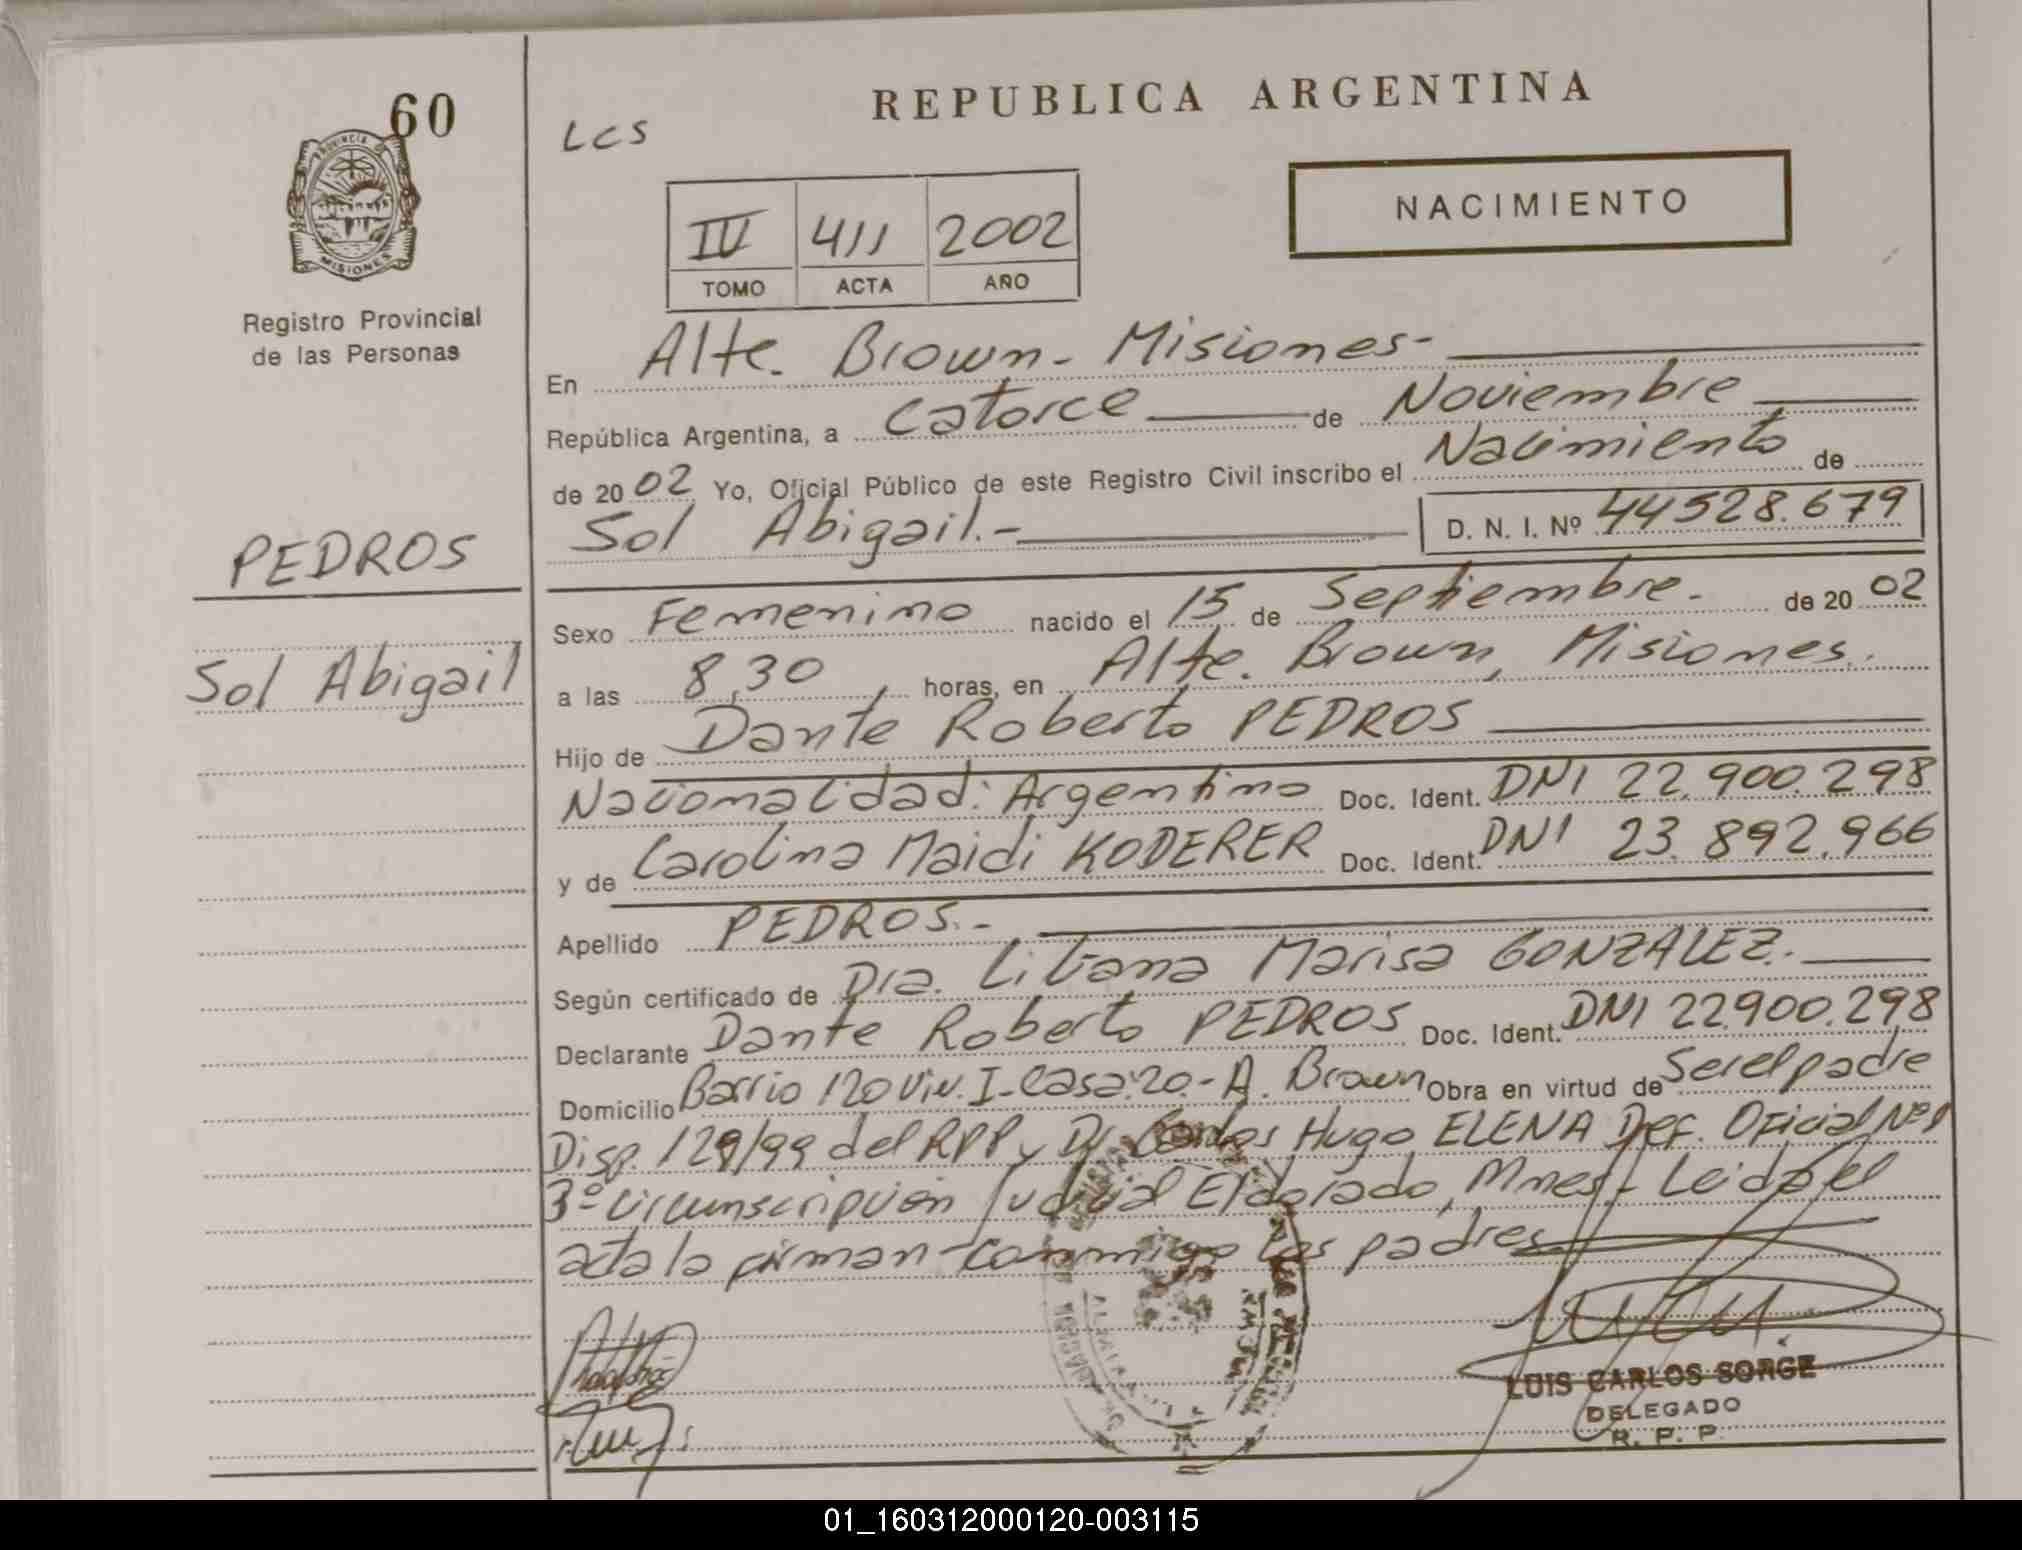 60
PROVINCIA DE
MISIONES
Registro Provincial
de las Personas
PEDROS
Sol Abigail
REPUBLICA ARGENTINA
LCS
NACIMIENTO
IV 411 2002
TOMO ACTA AÑO
En Alte. Brown - Misiones -
República Argentina, a Catorce de Noviembre
de 20 02 Yo, Oficial Público de este Registro Civil inscribo el Nacimiento de
Sol Abigail.- D. N. I. Nº 44528.679
Sexo Femenino nacido el 15 de Septiembre. de 20 02
a las 8,30 horas, en Alte. Brown, Misiones.
Hijo de Dante Roberto PEDROS
Nacionalidad: Argentina Doc. Ident. DNI 22.900.298
y de Carolina Maidi KODERER Doc. Ident. DNI 23.892.966
Apellido PEDROS.-
Según certificado de Dra. Liliana Marisa GONZALEZ.-
Declarante Dante Roberto PEDROS Doc. Ident. DNI 22.900.298
Domicilio Barrio 120 Viv. I-Casa:20.- A. Brown Obra en virtud de Ser el padre
Disp. 129/99 del RPP y Dr. Carlos Hugo ELENA Def. Oficial Nº1
3º Circunscripción Judicial Eldorado, Mnes.- Leida el
acta la firman conmigo los padres
LUIS CARLOS SORGE
DELEGADO
R. P. P.
01_160312000120-003115